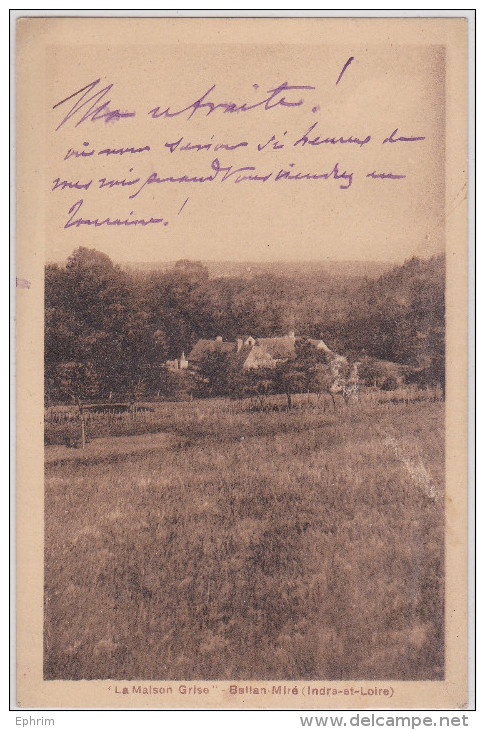 Ma retraite !
où nous serions si heureux de
vous voir quand vous viendrez en
Touraine !
"La Maison Grise" - Ballan-Miré (Indre-et-Loire)
Ephrim
http://www.delcampe.net